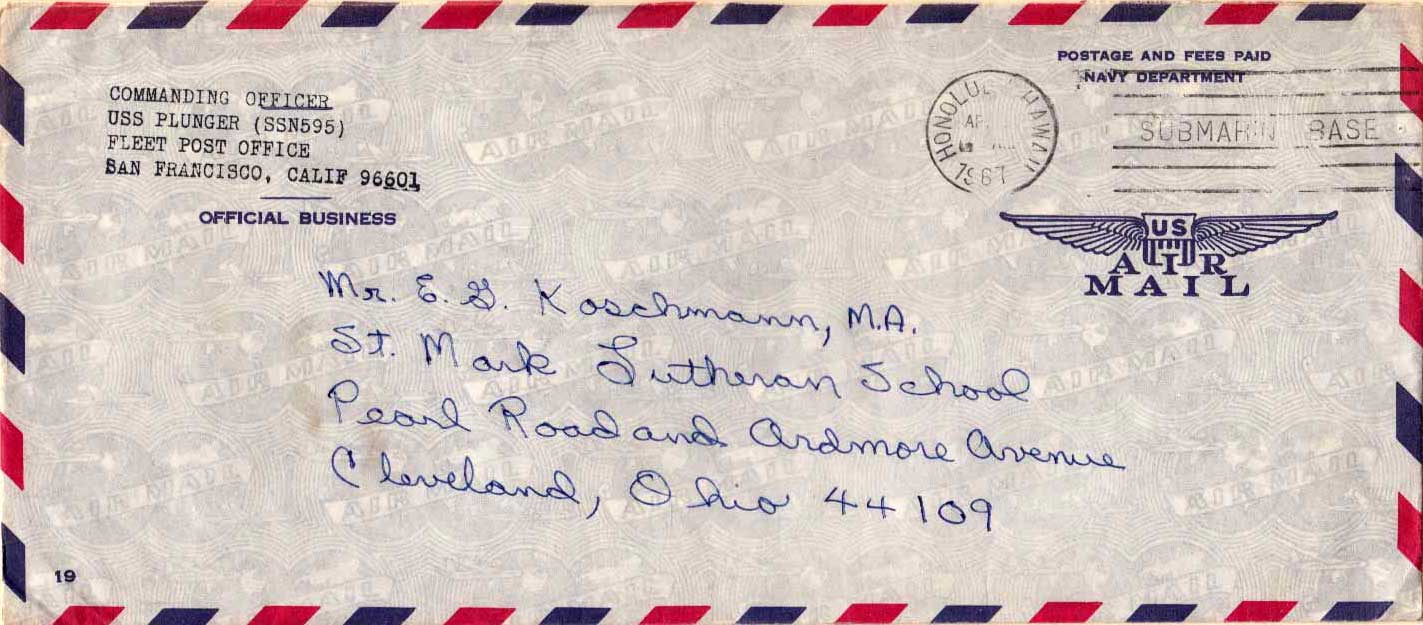 COMMANDING OFFICER
USS PLUNGER (SSN595)
FLEET POST OFFICE
SAN FRANCISCO, CALIF 96601
OFFICIAL BUSINESS
POSTAGE AND FEES PAID
NAVY DEPARTMENT
HAWAII
1967
BASE
US
AIR
MAIL
Mr. E. G. Koschmann, M.A.
St. Mark Lutheran School
Pearl Road and Ardmore Avenue
Cleveland, Ohio 44109
19